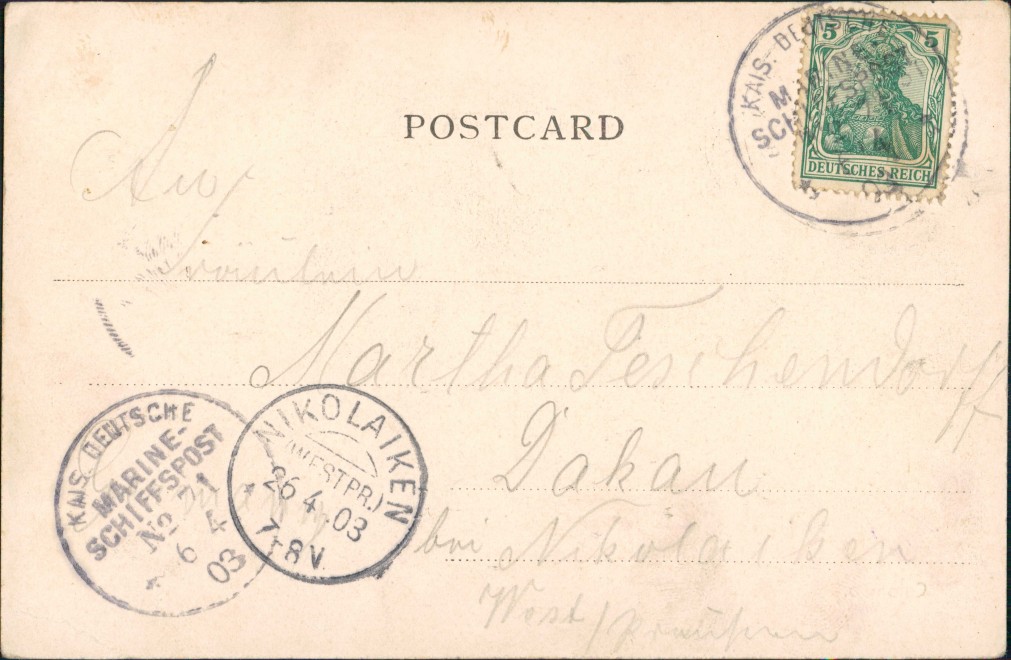 5 5
DEUTSCHES REICH
KAIS. DEUTSCHE
MARINE-
SCHIFFSPOST
POSTCARD
An
Fräulein
Martha Teschendorff
Dakau
bei Nikolaiken
West/preußen
KAIS. DEUTSCHE
MARINE-
SCHIFFSPOST
No 71
6 4
03
NIKOLAIKEN
(WESTPR.)
26.4.03
7-8V.